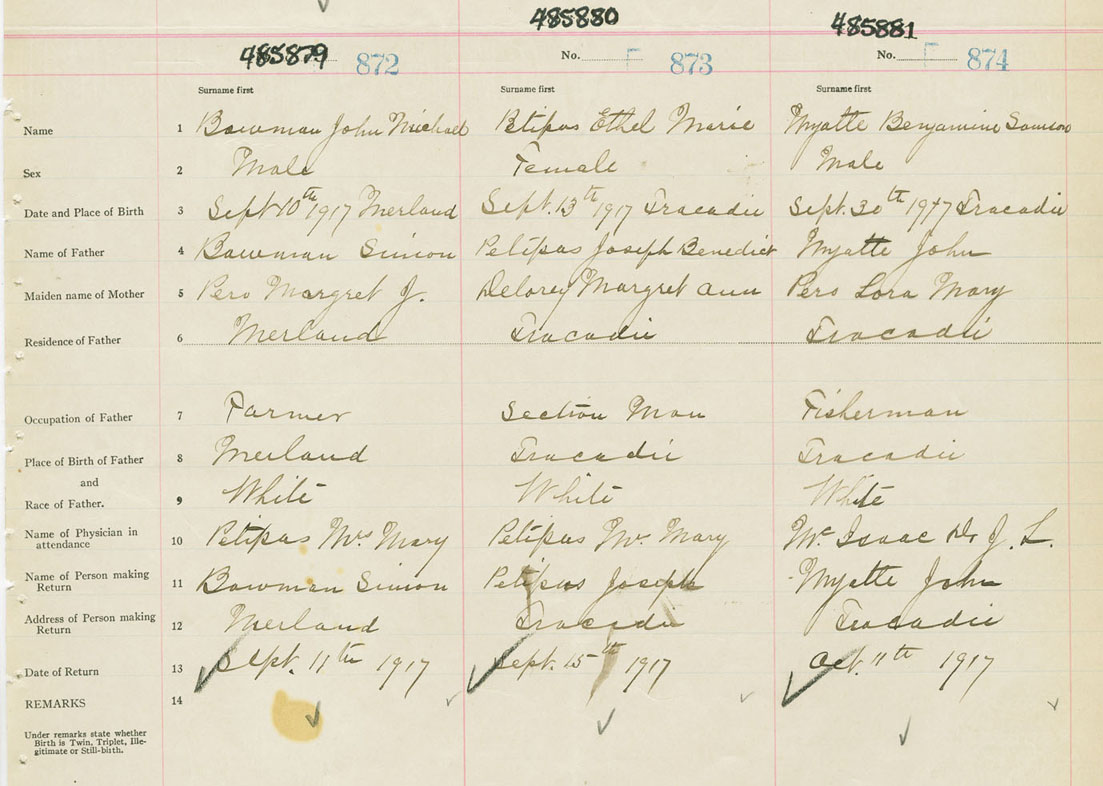 485879 485880 485881
872 No. F 873 No. F 874
Surname first Surname first Surname first
Name 1 Bowman John Michael Petipas Ethel Marie Myatte Benjamine Samson
Sex 2 Male Female Male
Date and Place of Birth 3 Sept 10th 1917 Merland Sept. 13th 1917 Tracadie Sept. 30th 1917 Tracadie
Name of Father 4 Bowman Simon Petipas Joseph Benedict Myatte John
Maiden name of Mother 5 Pero Margret J. Delorey Margret Ann Pero Lora Mary
Residence of Father 6 Merland Tracadie Tracadie
Occupation of Father 7 Farmer Section Man Fisherman
Place of Birth of Father 8 Merland Tracadie Tracadie
and
Race of Father. 9 White White White
Name of Physician in
attendance 10 Petipas Mrs Mary Petipas Mrs Mary McIsaac Dr J. L.
Name of Person making
Return 11 Bowman Simon Petipas Joseph Myatte John
Address of Person making
Return 12 Merland Tracadie Tracadie
Date of Return 13 Sept. 11th 1917 Sept. 15th 1917 Oct. 11th 1917
REMARKS 14
Under remarks state whether
Birth is Twin, Triplet, Ille-
gitimate or Still-birth.